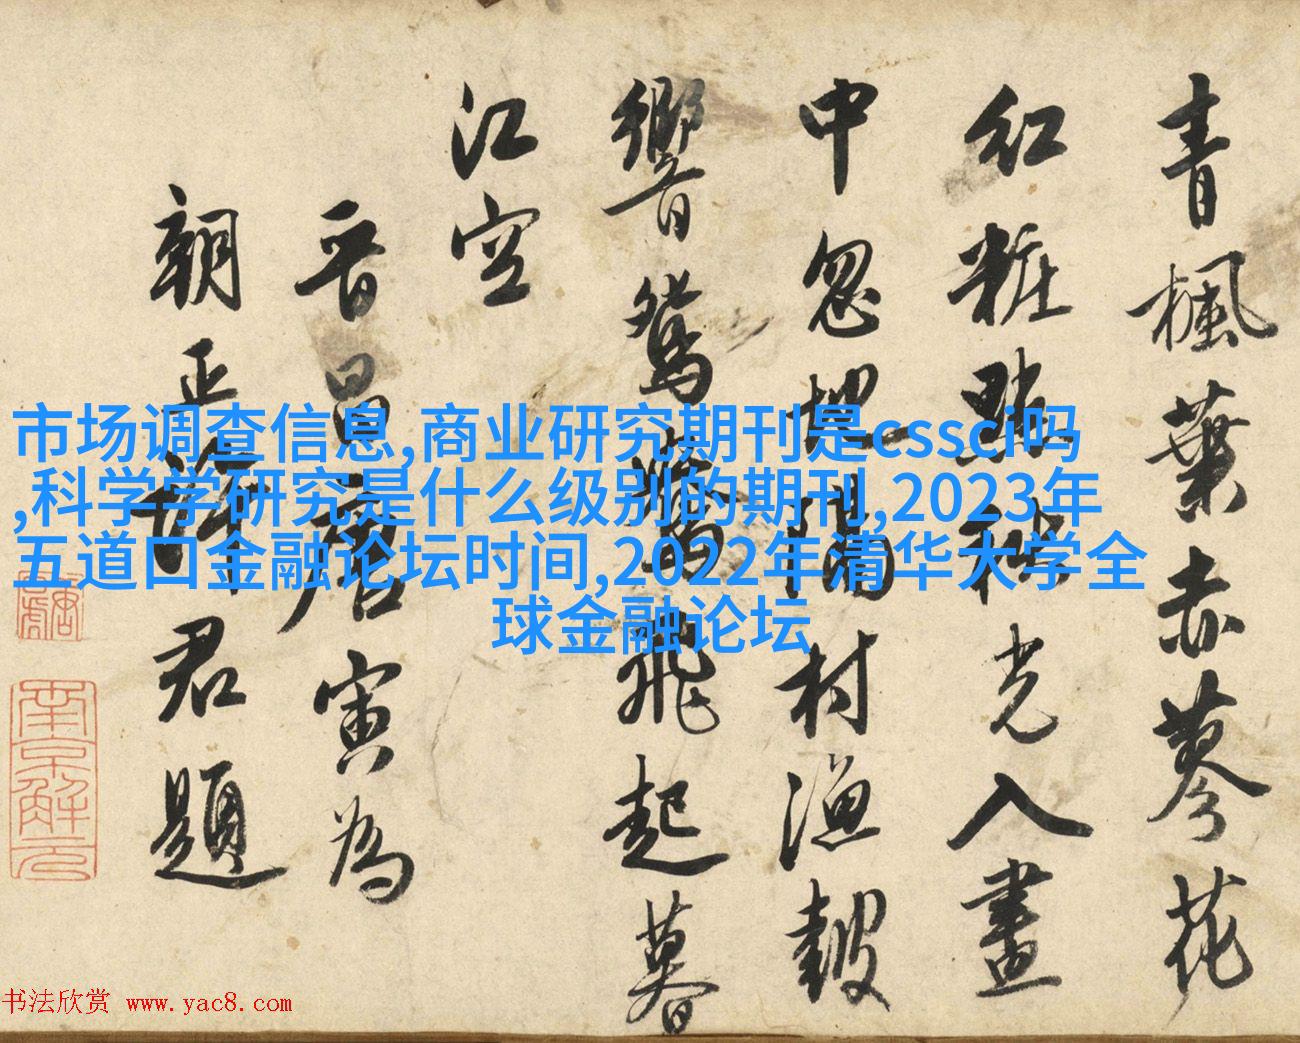 青楓葉赤蓼花
紅粧點秋光入畫
中忽地隔村漁皷
響鴛鴦飛起暮
江空
晉昌唐寅為
朝正君題
南京解元
市场调查信息,商业研究期刊是cssci吗
,科学学研究是什么级别的期刊,2023年
五道口金融论坛时间,2022年清华大学全
球金融论坛
书法欣赏 www.yac8.com